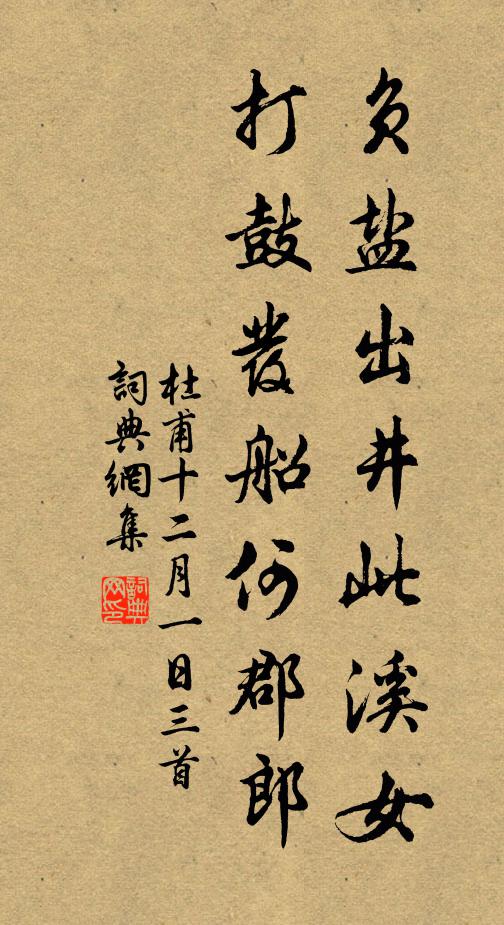 负盐出井此溪女
打鼓發船何郡郎
杜甫十二月一日三首
詞典網集
詞典网印